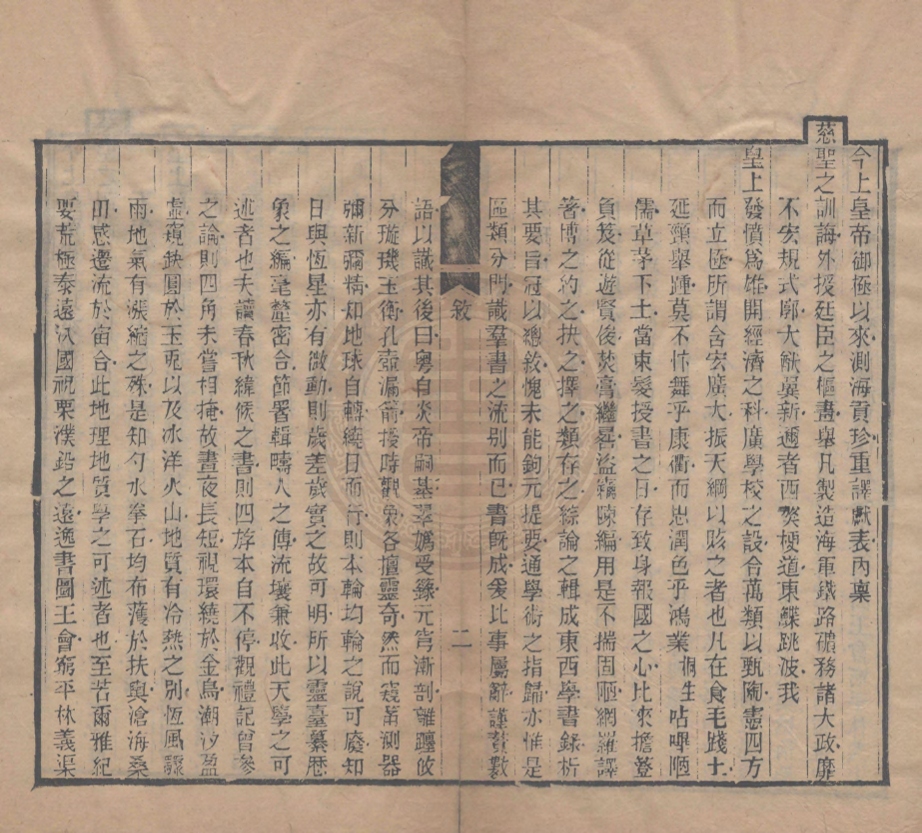 今上皇帝御極以來測海貢珍重譯獻表內稟
慈聖之訓誨外授廷臣之樞畫舉凡製造海軍鐵路礦務諸大政靡
不宏規式廓大猷奠新邇者西燹梗道東鰈跳波我
皇上發憤爲雄開經濟之科廣學校之設合萬類以甄陶憲四方
而立極所謂含宏廣大振天綱以賅之者也凡在食毛踐土
延頸舉踵莫不忭舞乎康衢而思潤色乎鴻業桐生呫嗶陋
儒草茅下士當束髮授書之日存致身報國之心比來擔簦
負笈從遊賢後焚膏繼晷盜竊陳編用是不揣固陋網羅譯
著博之約之抉之擇之類存之綜論之輯成東西學書錄析
其要旨冠以總敘愧未能鉤元提要通學術之指歸亦惟是
區類分門識羣書之流別而已書旣成爰比事屬辭謹贅數
敘
二
語以識其後曰粵自炎帝嗣基翠嬀受籙元宵漸剖離躔攸
分璇璣玉衡孔壺漏箭授時觀象各擅靈奇然而窺筩測器
彌新彌精知地球自轉繞日而行則本輪均輪之說可廢知
日與恆星亦有微動則歲差歲實之故可明所以靈臺纂厤
象之編毫釐密合節署輯疇人之傳流壤兼收此天學之可
述者也夫讀春秋緯候之書則四斿本自不停觀禮記曾參
之論則四角未嘗相掩故晝夜長短視環繞於金烏潮汐盈
虛窺缺圓於玉兎以及冰洋火山地質有冷熱之別恆風驟
雨地氣有漲縮之殊是知勺水拳石均布濩於扶輿滄海桑
田感遷流於宙合此地理地質學之可述者也至若爾雅紀
要荒極泰遠汃國視栗濮鉛之遠逸書圖王會窮平林義渠